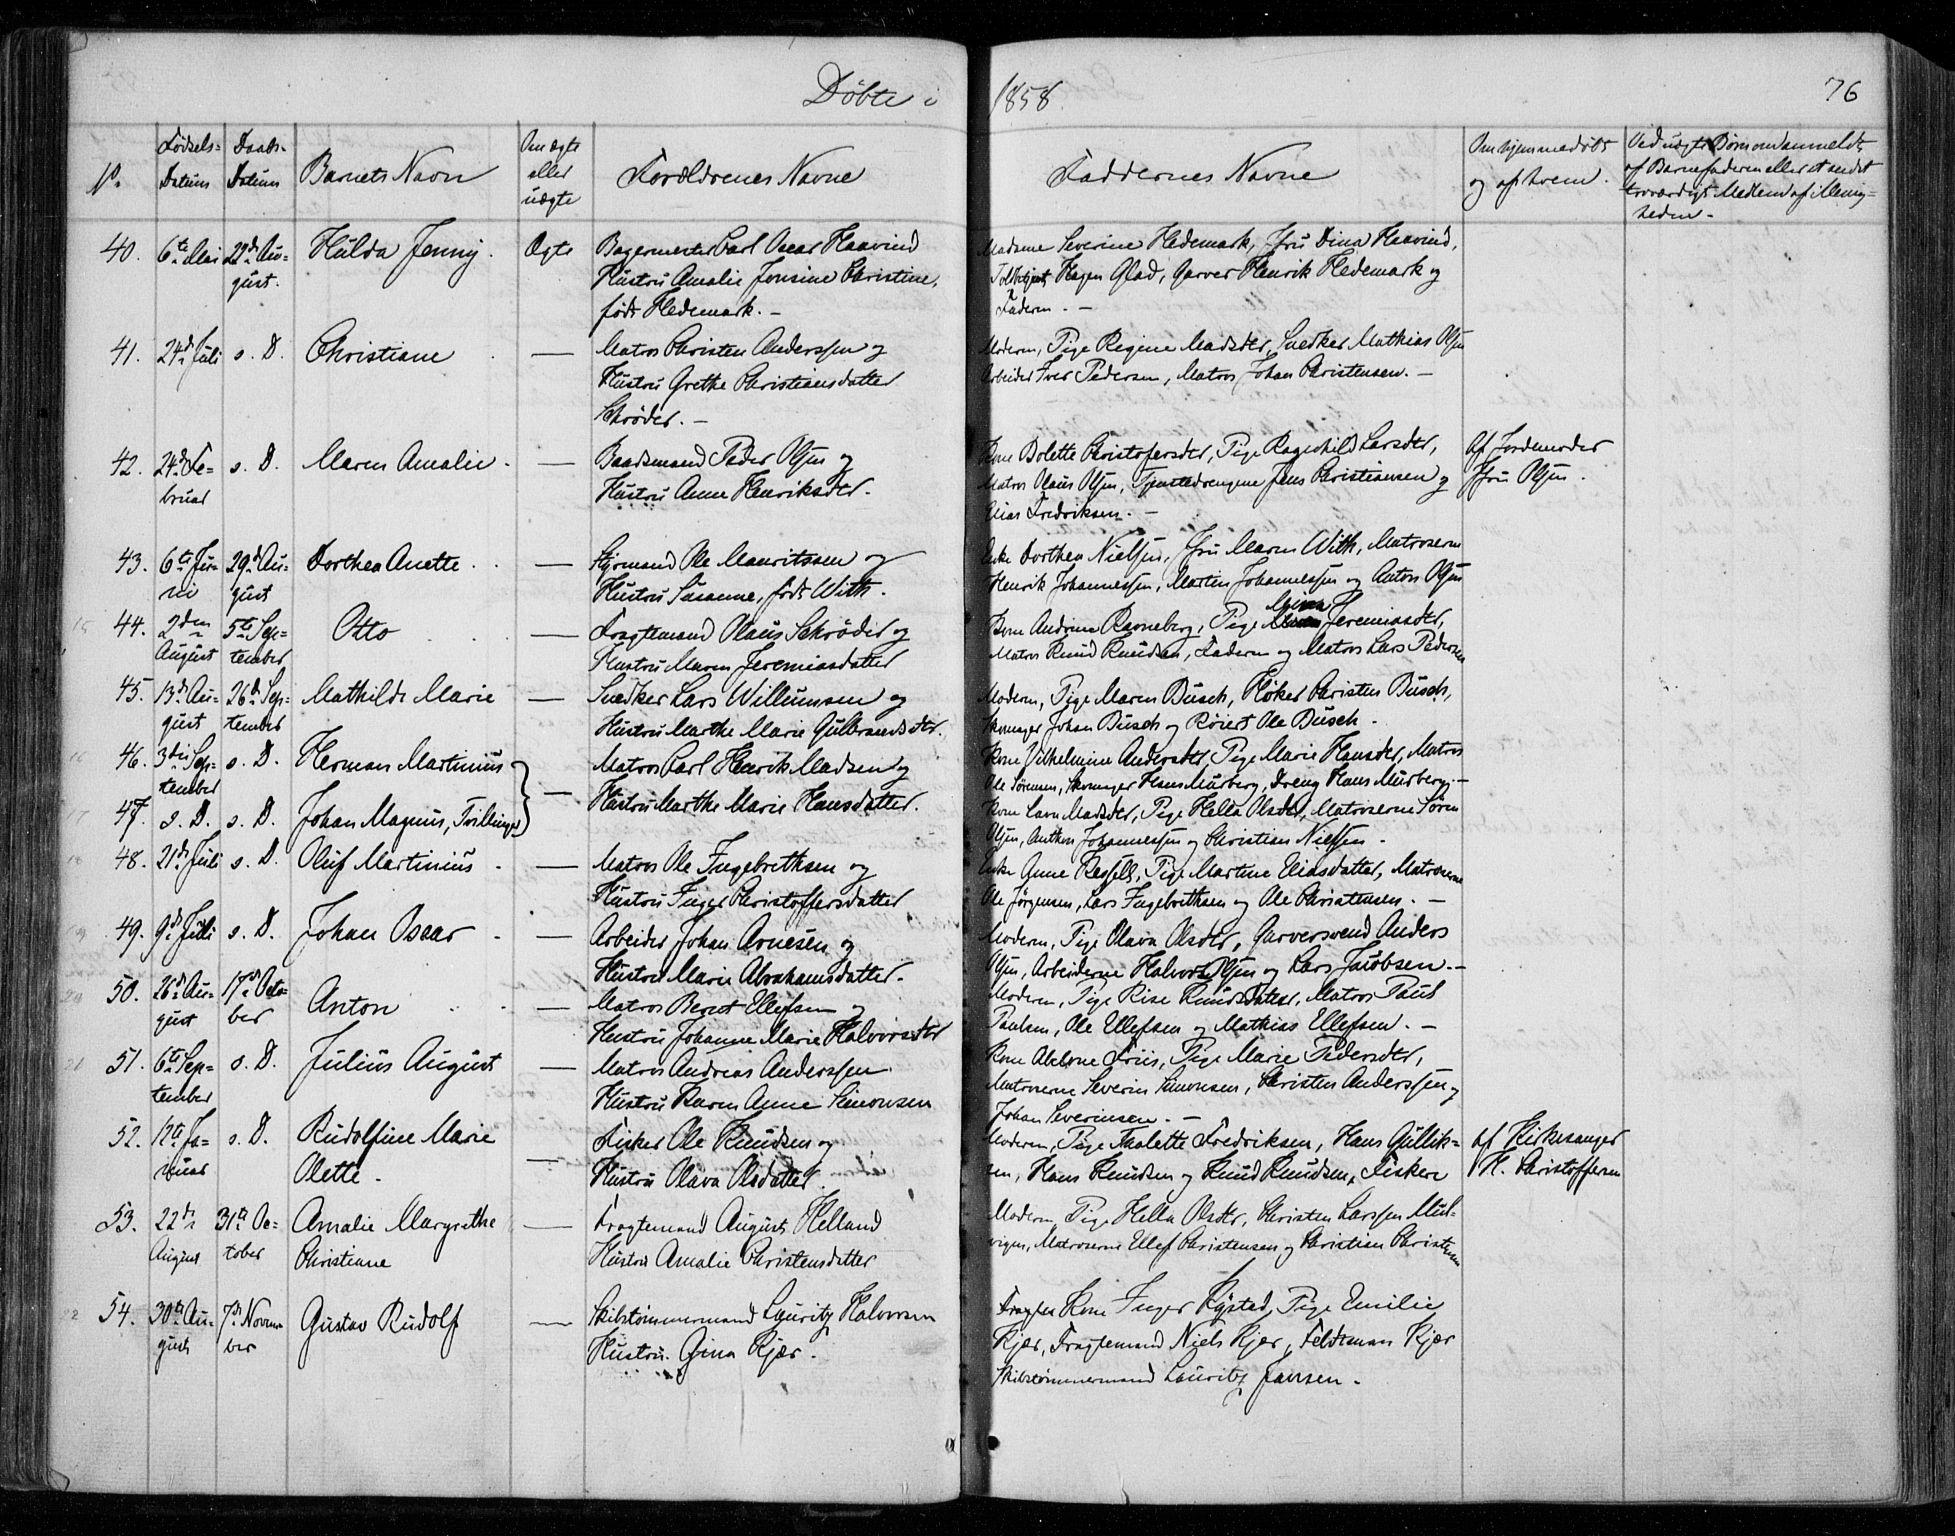 Døbte i 1858. 76
No. Fødsels-Datum Daabs-Datum Barnets Navn Om ægte eller uægte Forældrenes Navne Faddernes Navne Om hjemmedøbt og af hvem. Ved uægte Børn om anmeldt af Barnefaderen eller et andet troværdigt Medlem af Menigheden.
40. 6te Mai 22de August. Hulda Jenny. Ægte Bagermester Carl Oscar Haavind
Hustru Amalie Jonsine Christine,
født Hedemark. -
Madame Severine Hedemark, Jfru Dina Haavind,
Hagen Glad, Garver Henrik Hedemark og
Faderen. -
41. 24de Juli s. D. Christiane — Matros Christen Anderssen og
Hustru Grethe Christiansdatter
Schrøder. -
Moderen, Pige Regine Madsdtr, Snedker Mathias Olsen
Arbeider Iver Pedersen, Matros Johan Christensen. -
42. 24de Februar s. D. Maren Amalie. — Baadsmand Peder Olsen og
Hustru Anne Henriksdtr.
Kone Bolette Christofersdtr, Pige Ragnhild Larsdtr,
Matros Olaus Olsen, Tjenestedrengene Jens Christiansen og
Elias Fredriksen. -
Af Jordemoder
Jfru Olsen.
43. 6te Juni 29de August Dorthea Anette. — Styrmand Ole Mauritssen og
Hustru Susanne, født With.
Enke Dorthea Nielsen, Jfru Maren With, Matroserne
Henrik Johannessen, Martin Johannessen og Anton Olsen
44. 2den August 5te September Otto — Fragtemand Olaus Schrøder og
Hustru Maren Jeremiasdatter
Kone Andrine Ravneberg, Pige Jeremiasdtr,
Matros Knud Knudsen, Faderen og Matros Lars Pedersen
45. 13de August 26de September Mathilde Marie — Snedker Lars Willumsen og
Hustru Marthe Marie Gulbrandsdtr.
Moderen, Pige Maren Busch, Høker Christen Busch,
Skomager Johan Busch og Røiert Ole Busch.
46. 3die September s. D. Herman Martinius — Matros Carl Henrik Madsen og
Hustru Marthe Marie Hansdatter.
Kone Vilhelmine Andersdtr, Pige Marie Hansdtr, Matros
Ole Sørensen, Skomager Hans Murberg, Dreng Hans Murberg. -
47. s. D. s. D. Johan Magnus, Tvillinger
Kone Lavra Madsdtr, Pige Hella Olsdtr, Matroserne Søren
Olsen, Anthon Johannessen og Christian Nielsen.
48. 21de Juli s. D. Oluf Martinius — Matros Ole Ingebrethsen og
Hustru Inger Christoffersdatter
Enke Anne Ressell, Pige Martine Eliasdatter, Matroserne
Ole Jørgensen, Lars Ingebrethsen og Ole Christensen. -
49. 9de Juli s. D. Johan Oscar — Arbeider Johan Arnesen og
Hustru Marie Abrahamsdatter.
Moderen, Pige Olava Olsdtr, Garversvend Anders
Olsen, Arbeiderne Halvor Olsen og Lars Jacobsen. -
50. 26de August 17de October Anton — Matros Berent Ellefsen og
Hustru Johanne Marie Halvorsdtr
Moderen, Pige Rise Knudsdatter, Matros Paul
Paulsen, Ole Ellefsen og Mathias Ellefsen. -
51. 6te September s. D. Julius August — Matros Andreas Anderssen
Hustru Karen Anne Simonsen
Kone Abelone Friis, Pige Marie Pedersdtr,
Matroserne Severin Simonsen, Christen Anderssen og
Johan Severinsen. -
52. 12te Januar s. D. Rudolfine Marie
Olette. — Fisker Ole Knudsen og
Hustru Olava Olsdatter.
Moderen, Pige Thalette Fredriksen, Hans Gullik-
sen, Hans Knudsen og Knud Knudsen, Fiskere
af Kirkesanger
H. Christoffersen
53. 22de August 31te October Amalie Margrethe
Christiane — Fragtemand August Helland
Hustru Amalie Christensdatter
Moderen, Pige Hella Olsdtr, Christen Larssen Mul-
vigen, Matroserne Ellef Christensen og Christian Christensen
54. 30te August 7de November Gustav Rudolf — Skibstømmermand Lauritz Halvorsen
Hustru Gina Kjær.
Kone Inger Kysted, Pige Emilie
Kjær, Fragtemand Niels Kjær, Feldtman Kjær
Skibstømmermand Lauritz Jansen.